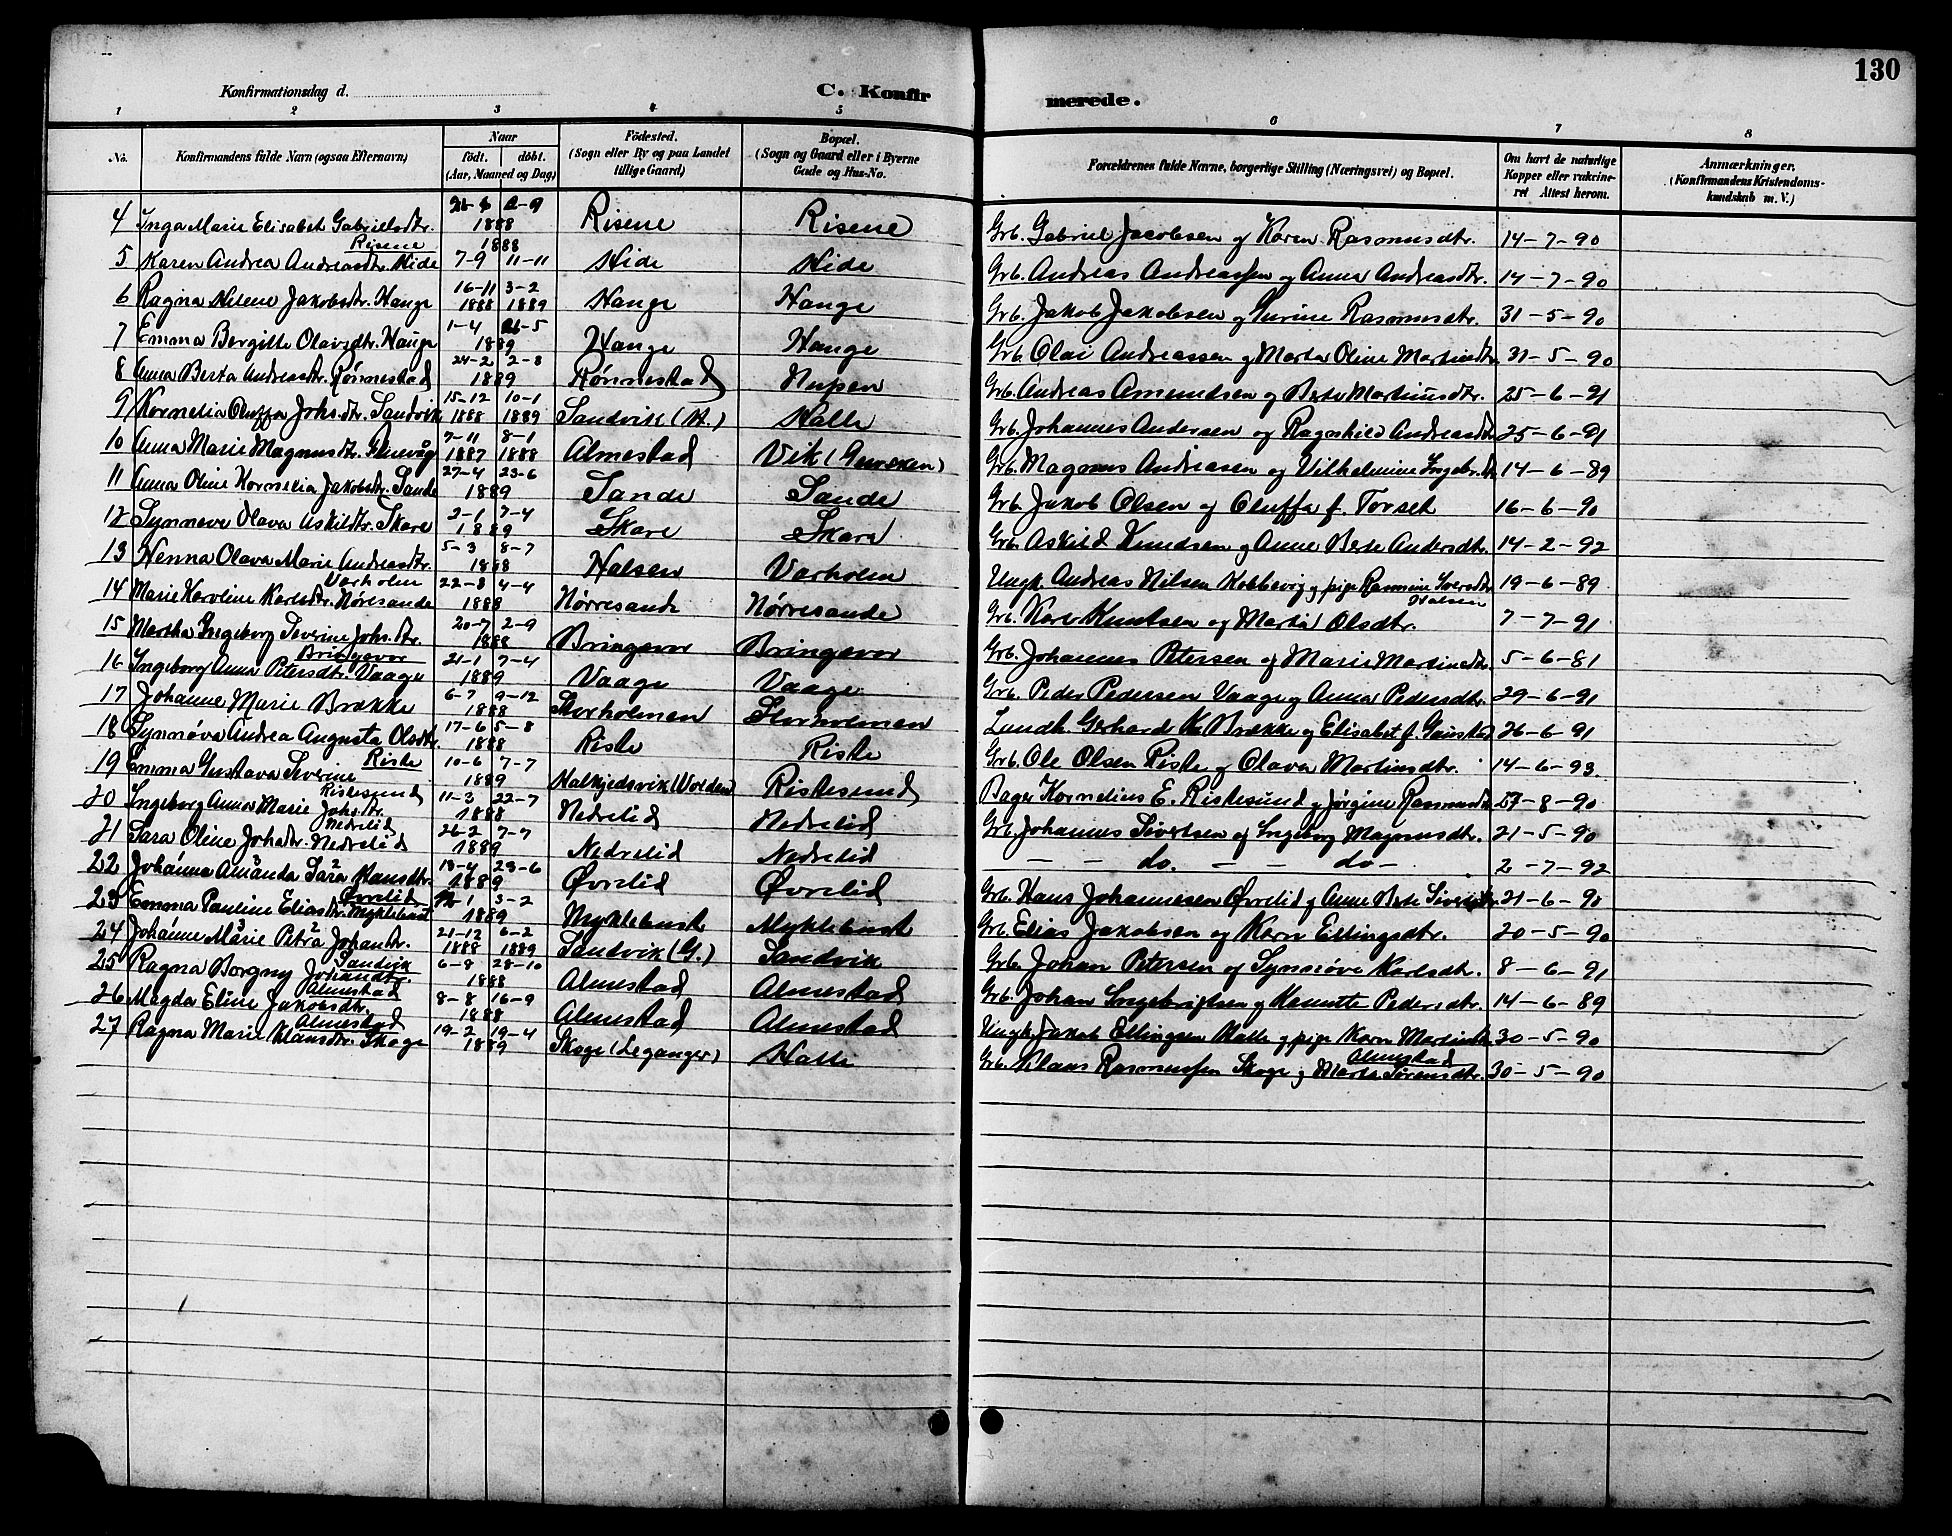 130
Konfirmationsdag d.
C. Konfirmerede.
1 2 3 4 5 6 7 8
No. Konfirmandens fulde Navn (ogsaa Efternavn) Naar födt. döbt. (Aar, Maaned og Dag) Födested. (Sogn eller By og paa Landet tillige Gaard) Bopæl. (Sogn og Gaard eller i Byerne Gade og Hus-No. Forældrenes fulde Navne, borgerlige Stilling (Næringsvei) og Bopæl. Om havt de naturlige Kopper eller vakcineret Attest herom. Anmærkninger. (Konfirmandens Kristendomskundskab m. V.)
4 Inga Marie Elisabet Gabrielsdtr. Risene 1888 Risene Risene Grb. Gabriel Jacobsen og Karen Rasmusdtr. 14-7-90
5 Karen Andrea Andreasdtr. Hide 7-9 11-11 1888 Hide Hide Grb. Andreas Andreassen og Anna Andreasdtr. 14-7-90
6 Ragna Helene Jakobsdtr. Hauge 16-11 1888 3-2 1889 Hauge Hauge Grb. Jakob Jakobsen og Rasmusdtr. 31-5-90
7 Emma Bergitte Olavsdtr. Hauge 1-4 26-5 1889 Hauge Hauge Grb. Olai Andreassen og Marta Oline Martinsdtr 31-5-90
8 Anna Berta Andreasdtr. Rönnestad 24-2 2-8 1889 Rönnestad Nupen Grb. Andreas Amundsen og Berte Martinusdtr. 25-6-91
9 Kornelia Oluffa Johs.dtr. Sandvik 15-12 1888 10-1 1889 Sandvik (H.) Halle Grb. Johannes Andersen og Ragnhild Andreasdtr 25-6-91
10 Anna Marie Magnusdtr. 7-11 1887 8-1 1888 Almestad Vik (Gursken) Grb. Magnus Andreasen og Vilhelmine Ingebr.dtr 14-6-89
11 Anna Oline Kornelia Jakobsdtr. Sande 27-4 23-6 1889 Sande Sande Grb. Jakob Olsen og Oluffa f. Torset 16-6-90
12 Synneve Olava Askildtr. Skare 2-1 7-4 1889 Skare Skare Grb. Askild Knudsen og Anne Berte Andersdtr. 14-2-92
13 Henna Olava Marie Andreasdtr. Varholm 5-3 8-7 1888 Halsen Varholm Ungk. Andreas Nilsen Kobbevig og pige Rasmine Iversdtr Halsen 19-6-89
14 Marie Karoline Karlsdtr. Nörresande 22-8 4-4 1888 Nörresande Nörresande Grb. Karl Knutsen og Marta Olsdtr. 7-7-91
15 Martha Ingeborg Severine Johs.dtr. Bringsvor 20-7 2-9 1888 Bringsvor Bringsvor Grb. Johannes Petersen og Marie Martinsdtr. 5-6-81
16 Ingeborg Anna Petersdtr. Vaage 21-1 7-4 1889 Vaage Vaage Grb. Peder Pedersen Vaage og Anna Pedersdtr. 29-6-91
17 Johanne Marie Brække 6-7 9-12 1888 Storholmen Storholmen Landh. Gerhard K. Brække og Elisabet f. 26-6-91
18 Synnöva Andrea Augusta Olsdtr. Riste 17-6 5-8 1888 Riste Riste Grb. Ole Olsen Riste og Olava Martinsdtr. 14-6-93.
19 Emma Gustava Severine Ristesund 10-6 7-7 1889 Halkjedsvik (Volden) Ristesund Bager Kornelius E. Ristesund og Jörgine Rasmusdtr 27-8-90
20 Ingeborg Anna Marie Johs.dtr. Nedrelid 11-3 22-7 1888 Nedrelid Nedrelid Grb. Johannes Sivertsen og Ingeborg Magnusdtr. 21-5-90
21 Sara Oline Johsdtr. Nedrelid 26-2 7-7 1889 Nedrelid Nedrelid — — do. — — do — 2-7-92
22 Johanna Amanda Sara Hansdtr. Øvrelid 13-4 23-6 1889 Øvrelid Øvrelid Grb. Hans Johannesen Øvrelid og Anne Berte Sivertsdtr 21-6-90
23 Emma Pauline Eliasdtr. Myklebust 3-2 1889 Myklebust Myklebust Grb. Elias Jakobsen og Karn Ellingsdtr. 20-5-90
24 Johanne Marie Petra Johandtr. Sandvik 21-12 1888 6-2 1889 Sandvik (G.) Sandvik Grb. Johan Petersen og Synnöve Karlsdtr. 8-6-91
25 Ragna Borgny Johandtr. Almestad 6-8 28-10 1888 Almestad Almestad Grb. Johan Ingebrigtsen og Pedersdtr. 14-6-89
26 Magda Eline Jakobsdtr. Almestad 8-8 16-9 1888 Almestad Almestad Ungk. Jakob Ellingsen Halle og pige Karn Martinsdtr Almestad 30-5-90
27 Ragna Marie Klausdtr. Skoge 19-2 19-4 1889 Skoge (Leganger) Halle Grb. Klaus Rasmussen Skoge og Marta Sörensdtr. 30-5-90